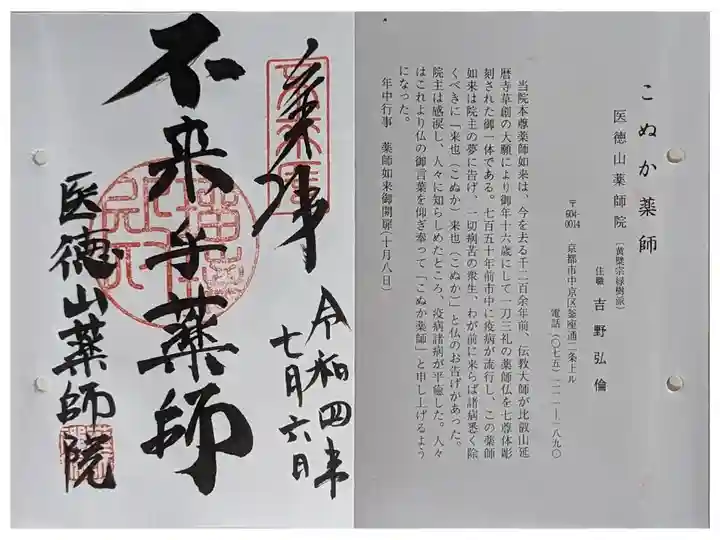 奉拝
令和四年
七月六日
不来乎薬師
医徳山薬師院
こぬか薬師
医徳山薬師院〔黄檗宗緑樹派〕
住職 吉野弘倫
〒604-0014 京都市中京区釜座通二条上ル
電話(〇七五)二一一―一八九〇
当院本尊薬師如来は、今を去る千二百余年前、伝教大師が比叡山延
暦寺草創の大願により御年十六歳にして一刀三礼の薬師仏を七尊体彫
刻された御一体である。七百五十年前市中に疫病が流行し、この薬師
如来は院主の夢に告げ、一切病苦の衆生、わが前に来らば諸病悉く除
くべきに「来也(こぬか)来也(こぬか)」と仏のお告げがあった。
院主は感涙し、人々に知らしめたところ、疫病諸病が平癒した。人々
はこれより仏の御言葉を仰ぎ奉って「こぬか薬師」と申し上げるよう
になった。
年中行事 薬師如来御開扉(十月八日)